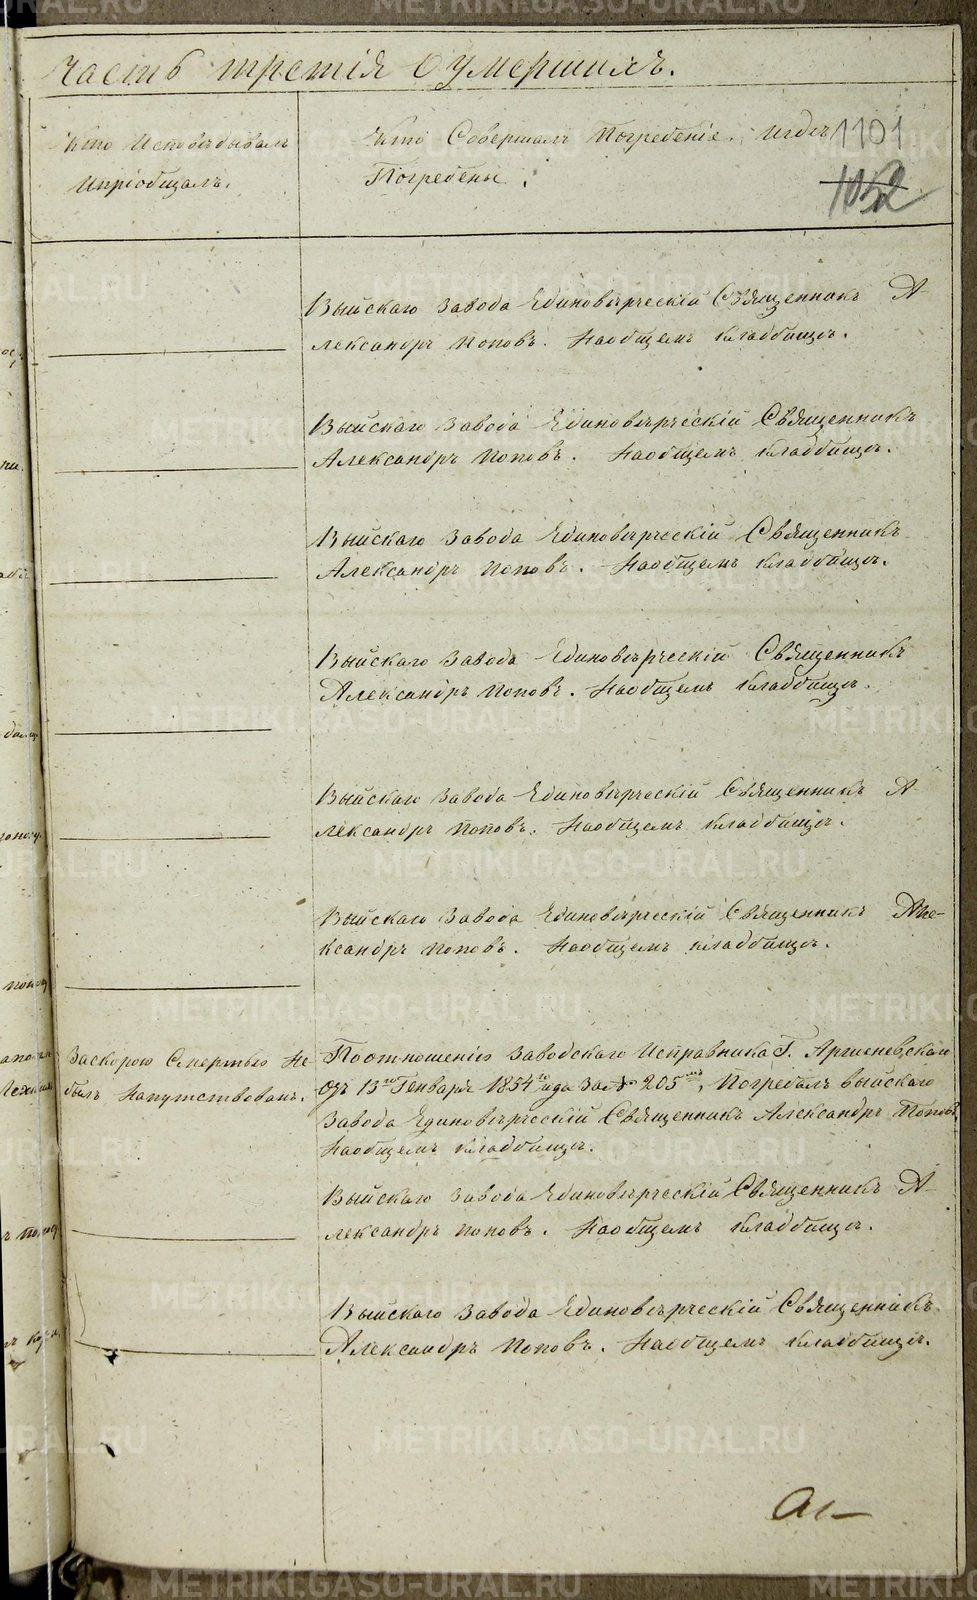 Часть третія оумершихъ.
Кто Исповѣдывалъ
Ипріобщалъ.
Кто Совершалъ Погребеніе. игдѣ
Погребены.
1101
1052
Выйскаго Завода Единовѣрческій Священникъ А-
лександръ Поповъ. Наобщемъ кладбищѣ.
Выйскаго Завода Единовѣрческій Священникъ
Александръ Поповъ. Наобщемъ кладбищѣ.
Выйскаго Завода Единовѣрческій Священникъ
Александръ Поповъ. Наобщемъ кладбищѣ.
Выйскаго Завода Единовѣрческій Священникъ
Александръ Поповъ. Наобщемъ кладбищѣ.
Выйскаго Завода Единовѣрческій Священникъ А-
лександръ Поповъ. Наобщемъ кладбищѣ.
Выйскаго Завода Единовѣрческій Священникъ Але-
ксандръ Поповъ. Наобщемъ кладбищѣ.
Заскорою Смертью Не
былъ Напутствованъ.
Поотношенію Заводскаго Исправника Г. Аргиневскаго
отъ 13го Генваря 1854го года за № 205мъ, Погребалъ Выйскаго
Завода Единовѣрческій Священникъ Александръ Поповъ
Наобщемъ кладбищѣ.
Выйскаго Завода Единовѣрческій Священникъ А-
лександръ Поповъ. Наобщемъ кладбищѣ.
Выйскаго Завода Единовѣрческій Священникъ
Александръ Поповъ. Наобщемъ кладбищѣ.
METRIKI.GASO-URAL.RU